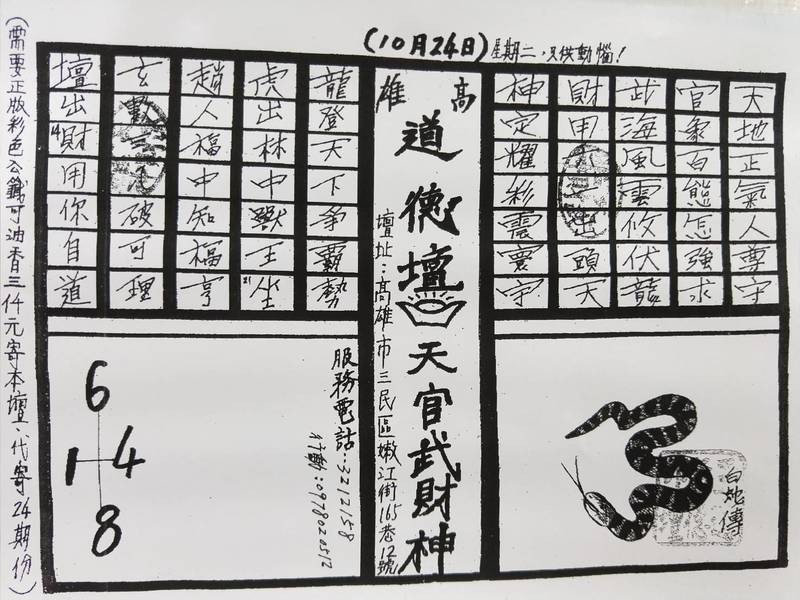 (10月24日)星期二，只供動惱！
天地正氣人尊守
官象百態怎強求
武海風雲攸伏龍
財甲出頭天
神定耀彩震寰宇
高雄
道德壇天官武財神
壇址：高雄市三民區嫩江街165巷12號
龍登天下爭霸勢
虎出林中獸王坐
趙人福中知福亨
玄數破可理
壇出財用你自道
白蛇傳
服務電話：3212158
行動：0978020512
6
1-4
8
(需要正版彩色公籤可油香三仟元寄本壇．代寄24期份)